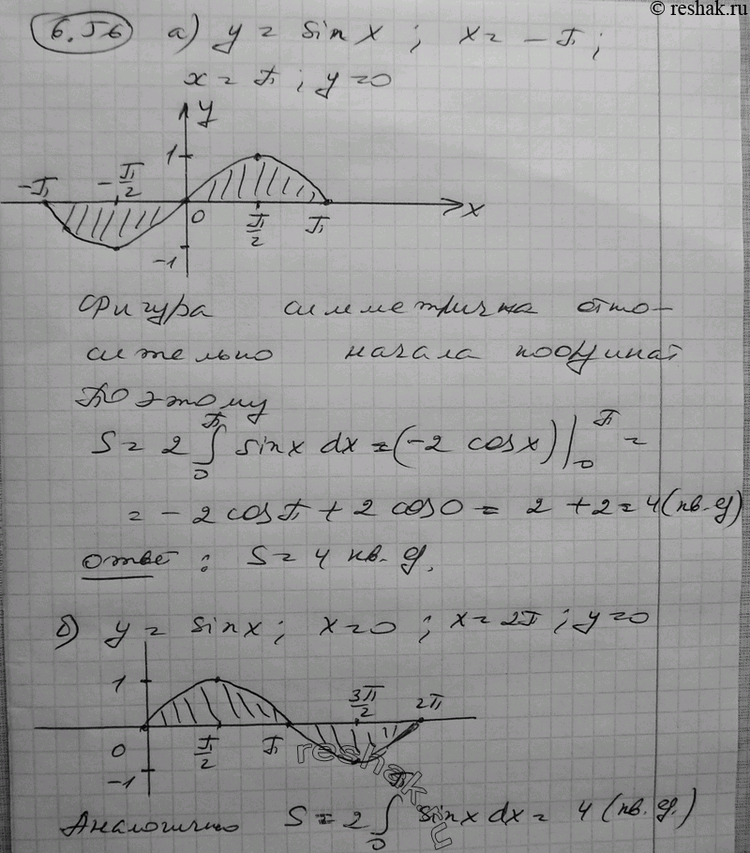 © reshak.ru
6.56 а) y = sin x ; x = -π ;
x = π ; y = 0
y
1
-π -π/2
0 π/2 π x
-1
Фигура симметрична отно-
сительно начала координат
Поэтому
S = 2 ∫₀^π sin x dx = (-2 cos x) |₀^π =
= - 2 cos π + 2 cos 0 = 2 + 2 = 4 (кв. ед)
Ответ : S = 4 кв. ед.
б) y = sin x ; x = 0 ; x = 2π ; y = 0
1
3π/2 2π
0 π/2 π
-1
reshak.ru
Аналогично S = 2 ∫₀^π sin x dx = 4 (кв. ед.)